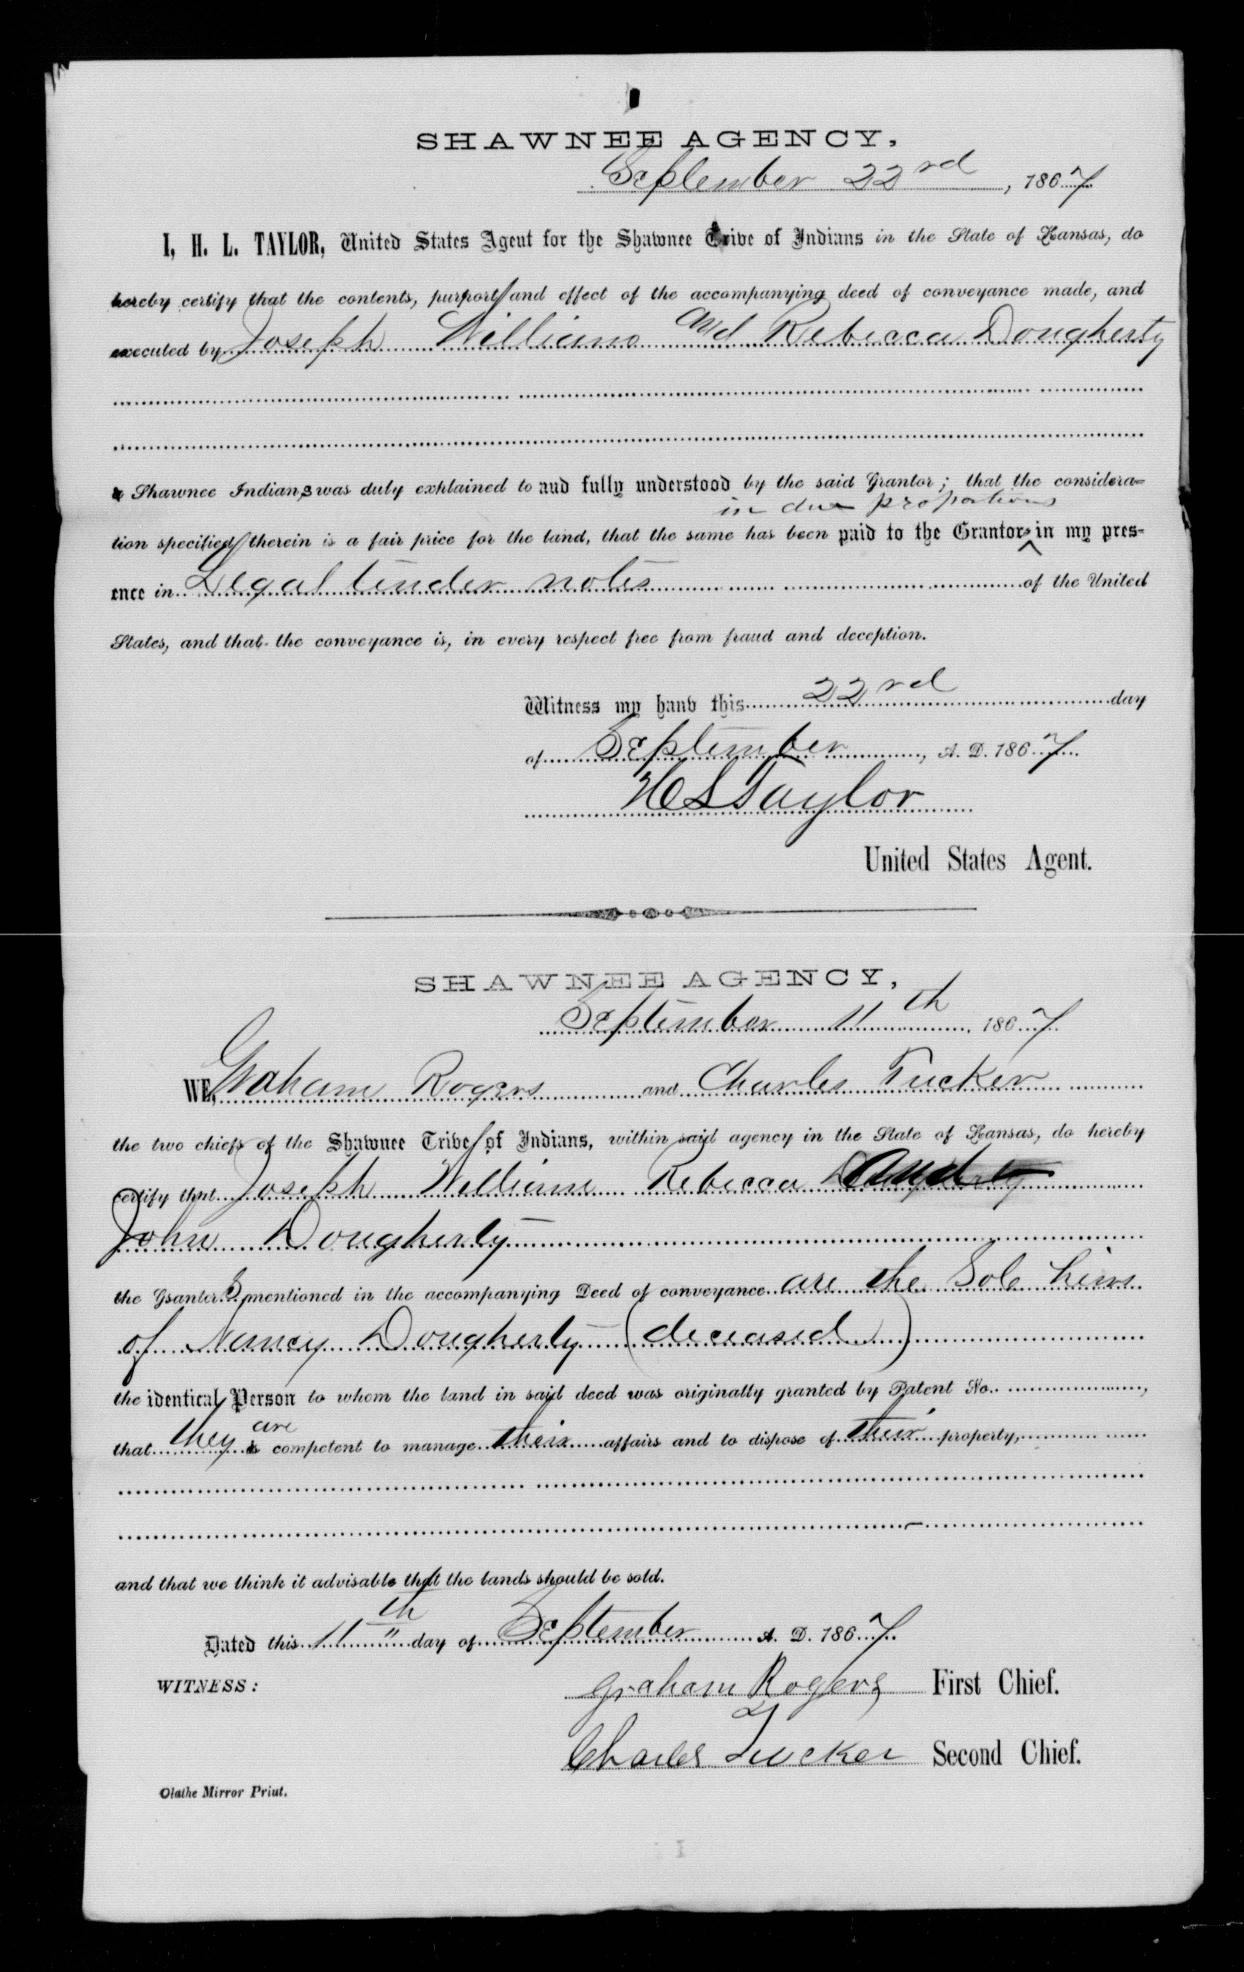 SHAWNEE AGENCY,
September 22rd, 1867
I, H. L. TAYLOR, United States Agent for the Shawnee Tribe of Indians in the State of Kansas, do
hereby certify that the contents, purport and effect of the accompanying deed of conveyance made, and
executed by Joseph Williams and Rebecca Dougherty
a Shawnee Indians was duly explained to and fully understood by the said Grantor; that the considera-
in due proportions
tion specified therein is a fair price for the land, that the same has been paid to the Grantors ^ in my pres-
ence in Legal tender notes of the United
States, and that the conveyance is, in every respect free from fraud and deception.
Witness my hand this 22rd day
of September, A. D. 1867
H L Taylor
United States Agent.
SHAWNEE AGENCY,
September 11th 1867
WE, Graham Rogers and Charles Tucker
the two chiefs of the Shawnee Tribe of Indians, within said agency in the State of Kansas, do hereby
certify that Joseph Williams Rebecca and
John Dougherty
the Granters mentioned in the accompanying Deed of conveyance are the Sole heirs
of Nancy Dougherty (deceased)
the identical Person to whom the land in said deed was originally granted by Patent No. ,
are
that they is competent to manage their affairs and to dispose of their property,
and that we think it advisable that the lands should be sold.
Dated this 11th " day of September A. D. 1867.
WITNESS:
Graham Rogers First Chief.
Charles Tucker Second Chief.
Olathe Mirror Print.